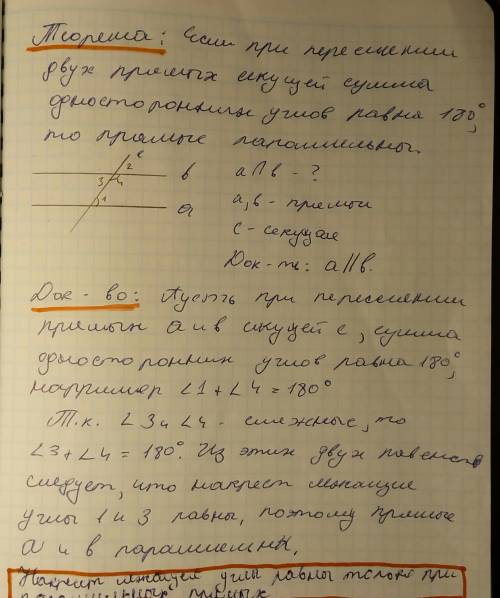 Теорема: Если при пересечении
двух прямых секущей сумма
односторонних углов равна 180°,
то прямые параллельны.
c
3 2 4 в a∩в - ?
1 a a,в - прямые
c - секущая
Док-ть: a||в.
Док-во: Пусть при пересечении
прямых a и в секущей c, сумма
односторонних углов равна 180°,
например ∠1+∠4=180°
Т.к. ∠3 и ∠4 - смежные, то
∠3+∠4=180°. Из этих двух равенств
следует, что накрест лежащие
углы 1 и 3 равны, поэтому прямые
a и в параллельны.
Накрест лежащие углы равны только при
параллельных прямых